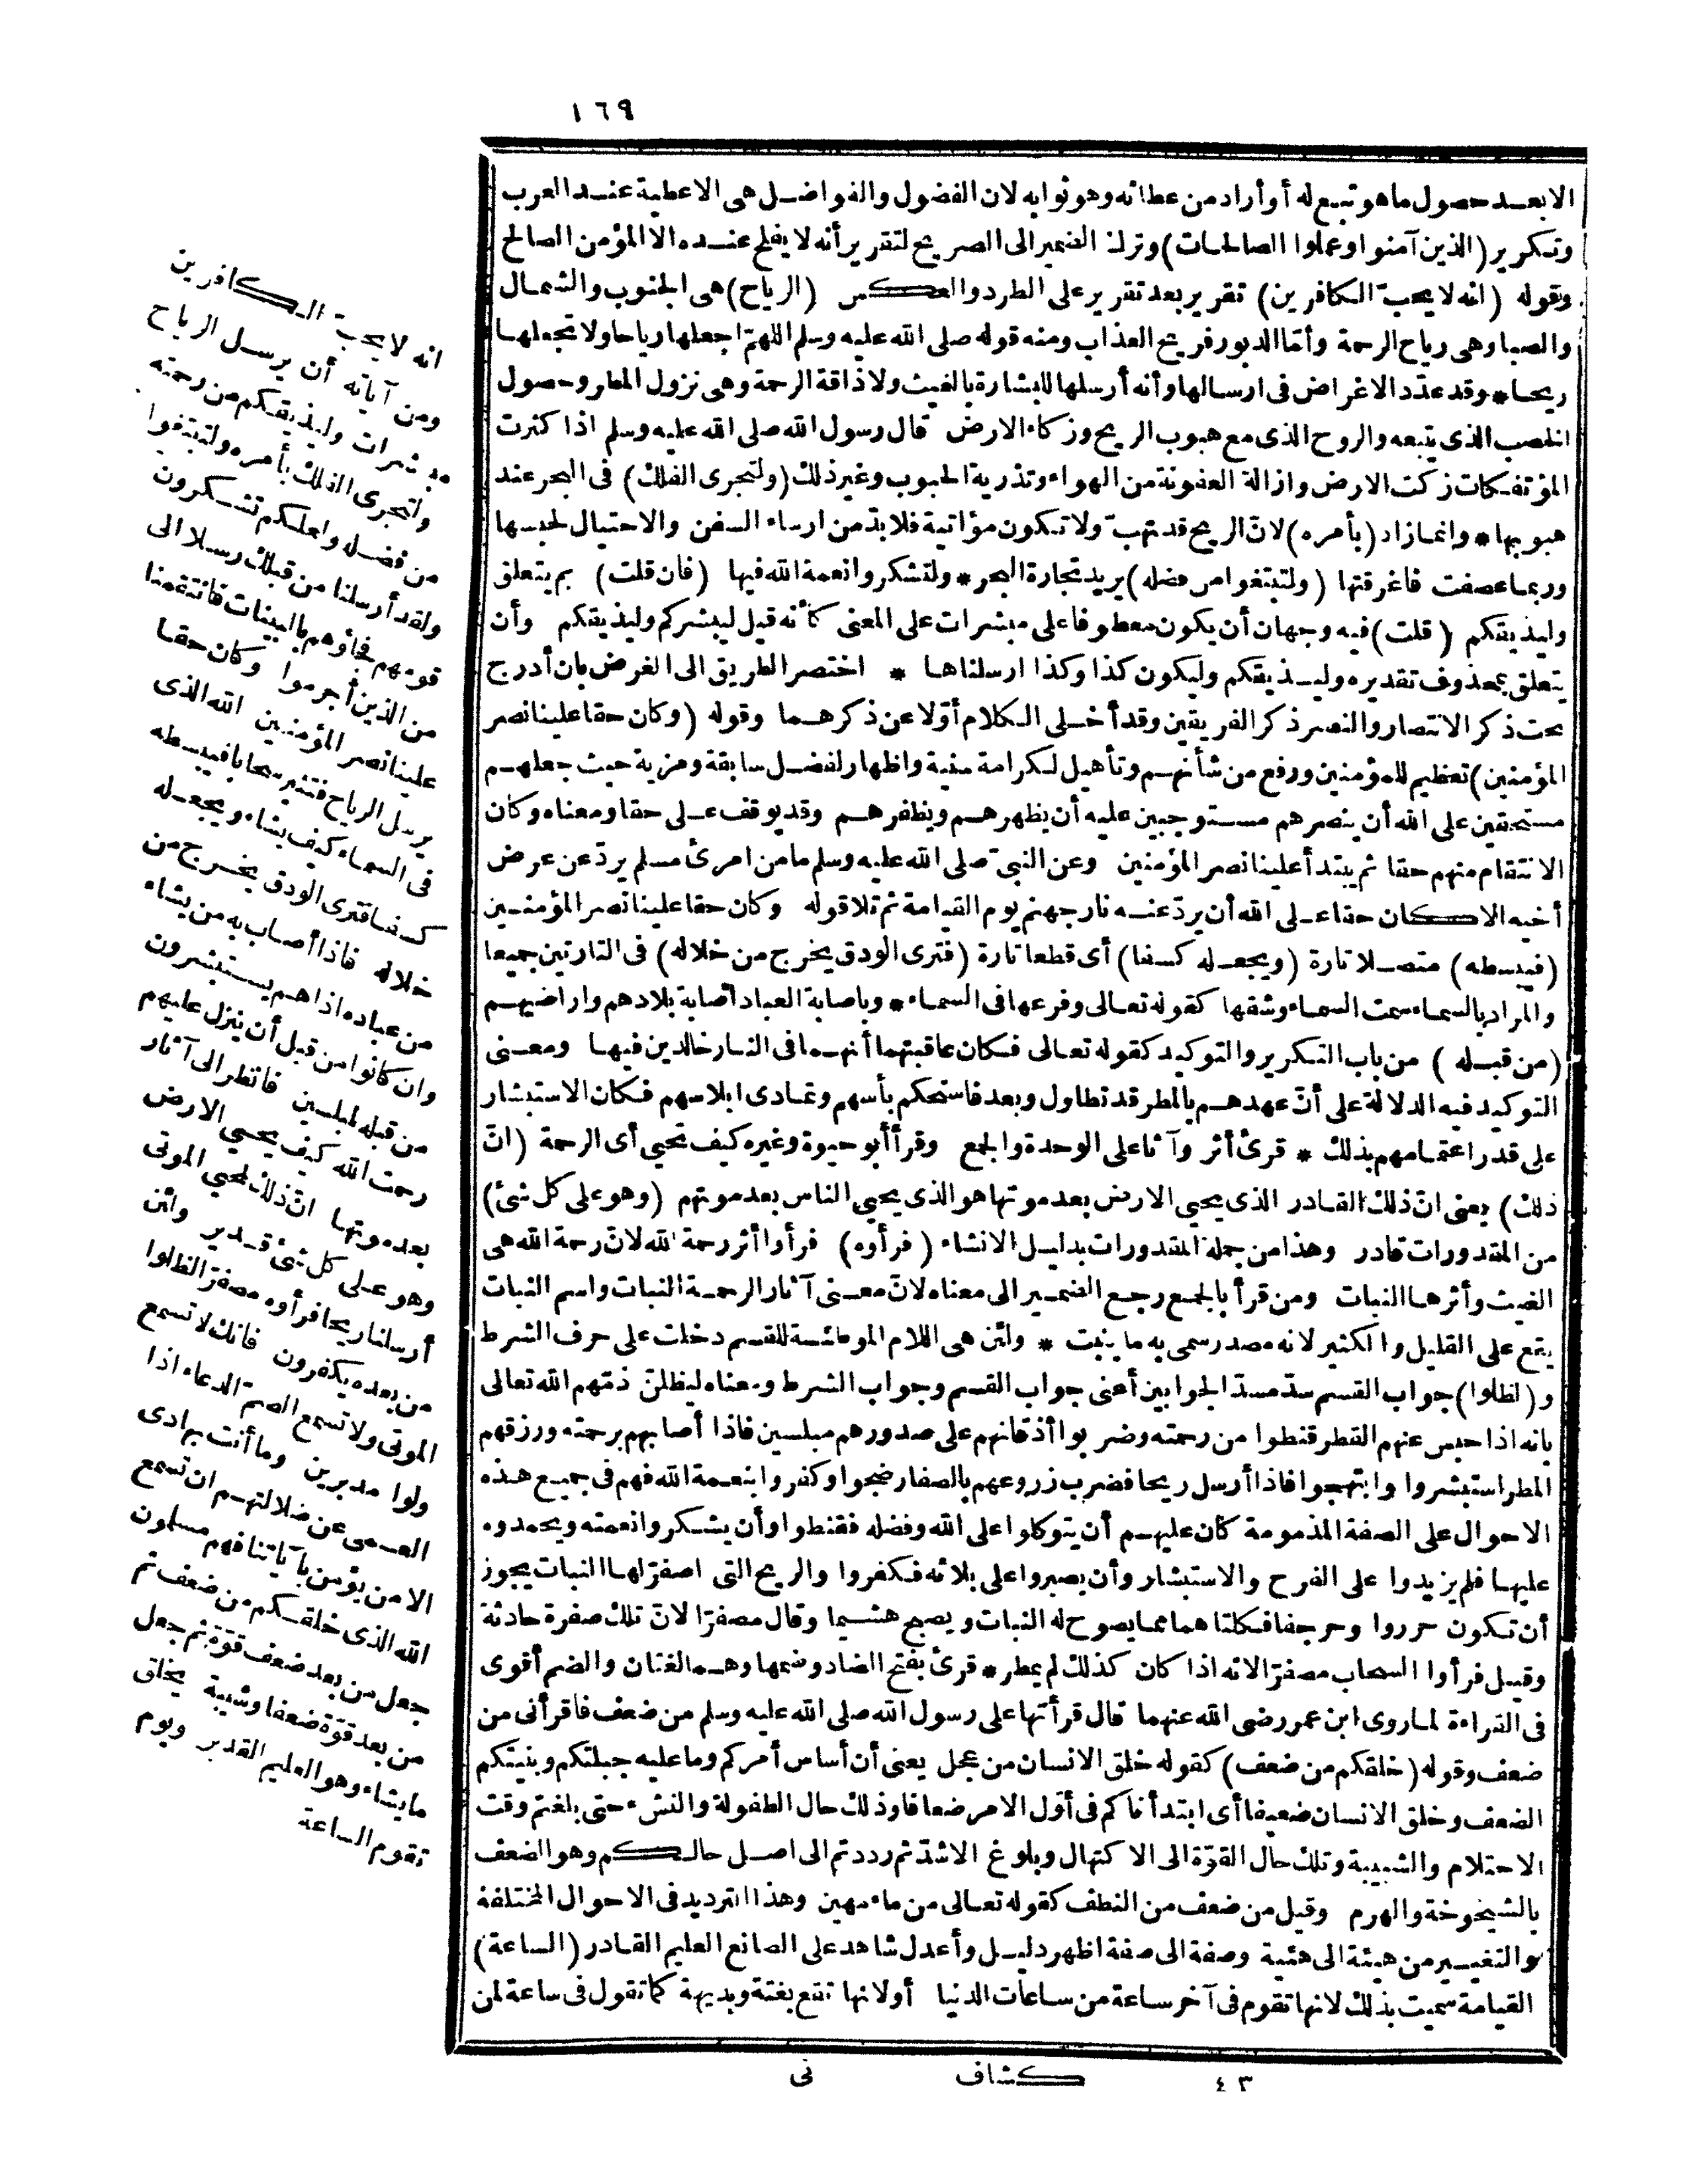 ١٦٩
الابعد حصول ما هو تبع له أو أراد من عطائه وهو ثوابه لان الفضول والفواضل هى الاعطية عند العرب
وتكرير (الذين آمنوا وعملوا الصالحات) وترك الضمير الى الصريح لتقرير أنه لا يفلح عنده الا المؤمن الصالح
وقوله (انه لا يحبّ الكافرين) تقرير بعد تقرير على الطرد والعكس (الرياح) هى الجنوب والشمال
والصبا وهى رياح الرحمة وأمّا الدبور فريح العذاب ومنه قوله صلى الله عليه وسلم اللهمّ اجعلها رياحا ولا تجعلها
ريحا * وقد عدّد الاغراض فى ارسالها وأنه أرسلها للبشارة بالغيث ولاذاقة الرحمة وهى نزول المطر وحصول
الخصب الذى يتبعه والروح الذى مع هبوب الريح وزكاء الارض قال رسول الله صلى الله عليه وسلم اذا كثرت
المؤتفكات زكت الارض وازالة العفونة من الهواء وتذرية الحبوب وغير ذلك (ولتجرى الفلك) فى البحر عند
هبوبها * وانما زاد (بأمره) لانّ الريح قد تهبّ ولا تكون مؤاتية فلا بدّ من ارساء السفن والاحتيال لحبسها
وربما عصفت فاغرقتها (ولتبتغوا من فضله) يريد تجارة البحر * ولتشكروا نعمة الله فيها (فان قلت) بم يتعلق
وليذيقكم (قلت) فيه وجهان أن يكون معطوفا على مبشرات على المعنى كأنه قيل ليبشركم وليذيقكم وأن
يتعلق بمحذوف تقديره وليذيقكم وليكون كذا وكذا ارسلناها * اختصر الطريق الى الغرض بان أدرج
تحت ذكر الانتصار والنصر ذكر الفريقين وقد أخلى الكلام أوّلا عن ذكرهما وقوله (وكان حقا علينا نصر
المؤمنين) تعظيم للمؤمنين ورفع من شأنهم وتأهيل لكرامة سنية واظهار لفضل سابقة ومزية حيث جعلهم
مستحقين على الله أن ينصرهم مستوجبين عليه أن يظهرهم ويظفرهم وقد يوقف على حقا ومعناه وكان
الانتقام منهم حقا ثم يبتدأ علينا نصر المؤمنين وعن النبىّ صلى الله عليه وسلم ما من امرئ مسلم يردّ عن عرض
أخيه الا كان حقا على الله أن يردّ عنه نار جهنم يوم القيامة ثم تلا قوله وكان حقا علينا نصر المؤمنين
(فيبسطه) متصلا تارة (ويجعله كسفا) أى قطعا تارة (فترى الودق يخرج من خلاله) فى التارتين جميعا
والمراد بالسماء سمت السماء وشقها كقوله تعالى وفرعها فى السماء * وباصابة العباد اصابة بلادهم واراضيهم
(من قبله) من باب التكرير والتوكيد كقوله تعالى فكان عاقبتهما أنهما فى النار خالدين فيها ومعنى
التوكيد فيه الدلالة على أنّ عهدهم بالمطر قد تطاول وبعد فاستحكم يأسهم وتمادى ابلاسهم فكان الاستبشار
على قدر اغتمامهم بذلك * قرئ أثر وآثار على الوحدة والجمع وقرأ أبو حيوة وغيره كيف تحيى أى الرحمة (انّ
ذلك) يعنى انّ ذلك القادر الذى يحيى الارض بعد موتها هو الذى يحيى الناس بعد موتهم (وهو على كل شئ)
من المقدورات قادر وهذا من جملة المقدورات بدليل الانشاء (فرأوه) فرأوا أثر رحمة الله لانّ رحمة الله هى
الغيث وأثرها النبات ومن قرأ بالجمع رجع الضمير الى معناه لانّ معنى آثار الرحمة النبات واسم النبات
يقع على القليل والكثير لانه مصدر سمى به ما ينبت * ولئن هى اللام الموطئة للقسم دخلت على حرف الشرط
و(لظلوا) جواب القسم سدّ مسدّ الجوابين أعنى جواب القسم وجواب الشرط ومعناه ليظلنّ ذمّهم الله تعالى
بانه اذا حبس عنهم القطر قنطوا من رحمته وضربوا أذقانهم على صدورهم مبلسين فاذا أصابهم برحمته ورزقهم
المطر استبشروا وابتهجوا فاذا أرسل ريحا فضرب زروعهم بالصفار ضجوا وكفروا بنعمة الله فهم فى جميع هذه
الاحوال على الصفة المذمومة كان عليهم أن يتوكلوا على الله وفضله فقنطوا وأن يشكروا نعمته ويحمدوه
عليها فلم يزيدوا على الفرح والاستبشار وأن يصبروا على بلائه فكفروا والريح التى اصفرّ لها النبات يجوز
أن تكون حرورا وحرجفا فكلتاهما مما يصوح له النبات ويصبح هشيما وقال مصفرّا لانّ تلك صفرة حادثة
وقيل فرأوا السحاب مصفرّا لانه اذا كان كذلك لم يمطر * قرئ بفتح الضاد وضمها وهما لغتان والضم أقوى
فى القراءة لما روى ابن عمر رضى الله عنهما قال قرأتها على رسول الله صلى الله عليه وسلم من ضعف فاقرأنى من
ضعف وقوله (خلقكم من ضعف) كقوله خلق الانسان من عجل يعنى أن أساس أمركم وما عليه جبلتكم وبنيتكم
الضعف وخلق الانسان ضعيفا أى ابتدأناكم فى أوّل الامر ضعافا وذلك حال الطفولة والنشء حتى بلغتم وقت
الاحتلام والشبيبة وتلك حال القوّة الى الاكتهال وبلوغ الاشدّ ثم رددتم الى اصل حالكم وهو الضعف
بالشيخوخة والهرم وقيل من ضعف من النطف كقوله تعالى من ماء مهين وهذا الترديد فى الاحوال المختلفة
والتغيير من هيئة الى هيئة وصفة الى صفة اظهر دليل وأعدل شاهد على الصانع العليم القادر (الساعة)
القيامة سميت بذلك لانها تقوم فى آخر ساعة من ساعات الدنيا أو لانها تقع بغتة وبديهة كما تقول فى ساعة لمن
انه لا يحبّ الكافرين
ومن آياته أن يرسل الرياح
مبشرات وليذيقكم من رحمته
ولتجرى الفلك بأمره ولتبتغوا
من فضله ولعلكم تشكرون
ولقد أرسلنا من قبلك رسلا الى
قومهم فجاؤهم بالبينات فانتقمنا
من الذين أجرموا وكان حقا
علينا نصر المؤمنين الله الذى
يرسل الرياح فتثير سحابا فيبسطه
فى السماء كيف يشاء ويجعله
كسفا فترى الودق يخرج من
خلاله فاذا أصاب به من يشاء
من عباده اذا هم يستبشرون
وان كانوا من قبل أن ينزل عليهم
من قبله لمبلسين فانظر الى آثار
رحمت الله كيف يحيى الارض
بعد موتها انّ ذلك لمحيى الموتى
وهو على كل شئ قدير ولئن
أرسلنا ريحا فرأوه مصفرّا لظلوا
من بعده يكفرون فانك لا تسمع
الموتى ولا تسمع الصمّ الدعاء اذا
ولوا مدبرين وما أنت بهادى
العمى عن ضلالتهم ان تسمع
الا من يؤمن بآياتنا فهم مسلمون
الله الذى خلقكم من ضعف ثم
جعل من بعد ضعف قوّة ثم جعل
من بعد قوّة ضعفا وشيبة يخلق
ما يشاء وهو العليم القدير ويوم
تقوم الساعة
٤٣ كشاف نى